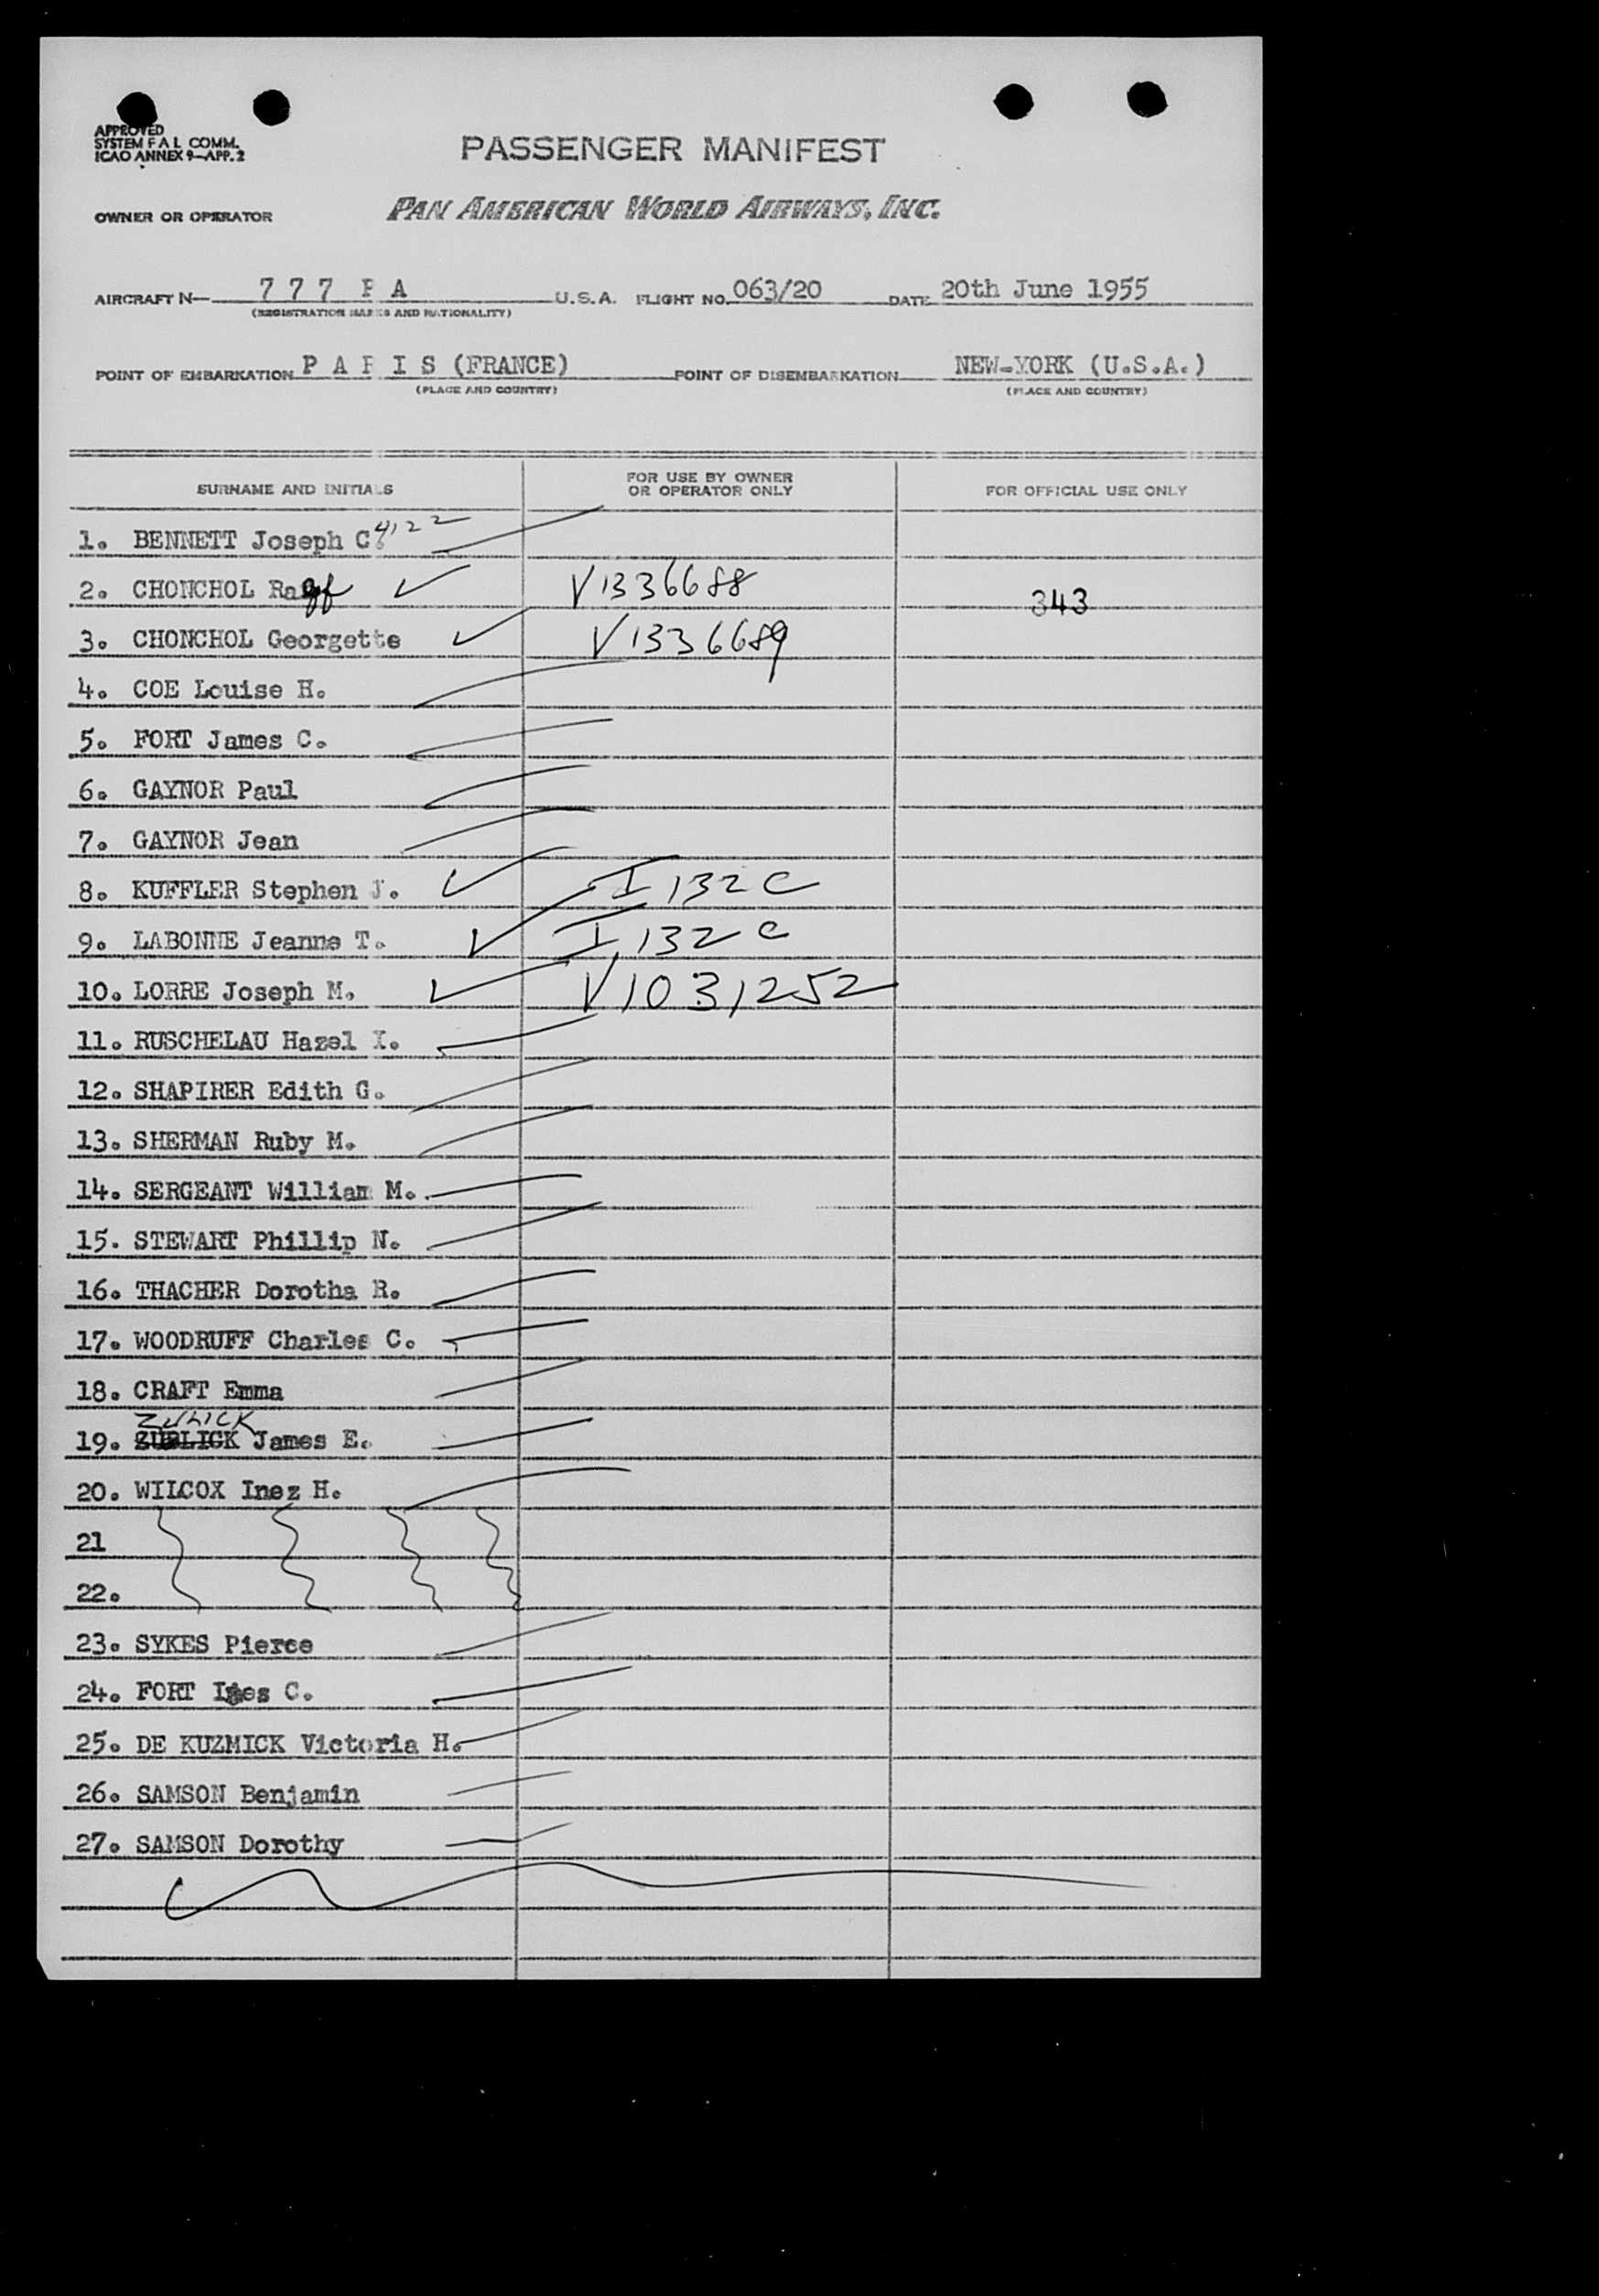 APPROVED
SYSTEM F A L COMM.
ICAO ANNEX 9—APP. 2
PASSENGER MANIFEST
OWNER OR OPERATOR PAN AMERICAN WORLD AIRWAYS, INC.
AIRCRAFT N— 7 7 7 P A U.S.A. FLIGHT NO. 063/20 DATE 20th June 1955
(REGISTRATION MARKS AND NATIONALITY)
POINT OF EMBARKATION P A R I S (FRANCE) POINT OF DISEMBARKATION NEW-YORK (U.S.A.)
(PLACE AND COUNTRY) (PLACE AND COUNTRY)
SURNAME AND INITIALS FOR USE BY OWNER OR OPERATOR ONLY FOR OFFICIAL USE ONLY
1. BENNETT Joseph C. 4122
2. CHONCHOL V1336688 343
3. CHONCHOL Georgette V1336689
4. COE Louise H.
5. FORT James C.
6. GAYNOR Paul
7. GAYNOR Jean
8. KUFFLER Stephen J. I 132 C
9. LABONNE Jeanne T. I 132 C
10. LORRE Joseph M. V1031252
11. RUSCHELAU Hazel I.
12. SHAPIRER Edith G.
13. SHERMAN Ruby M.
14. SERGEANT William M.
15. STEWART Phillip N.
16. THACHER Dorotha R.
17. WOODRUFF Charles C.
18. CRAFT Emma
ZULICK
19. James E.
20. WILCOX Inez H.
21
22.
23. SYKES Pierce
24. FORT C.
25. DE KUZMICK Victoria H.
26. SAMSON Benjamin
27. SAMSON Dorothy